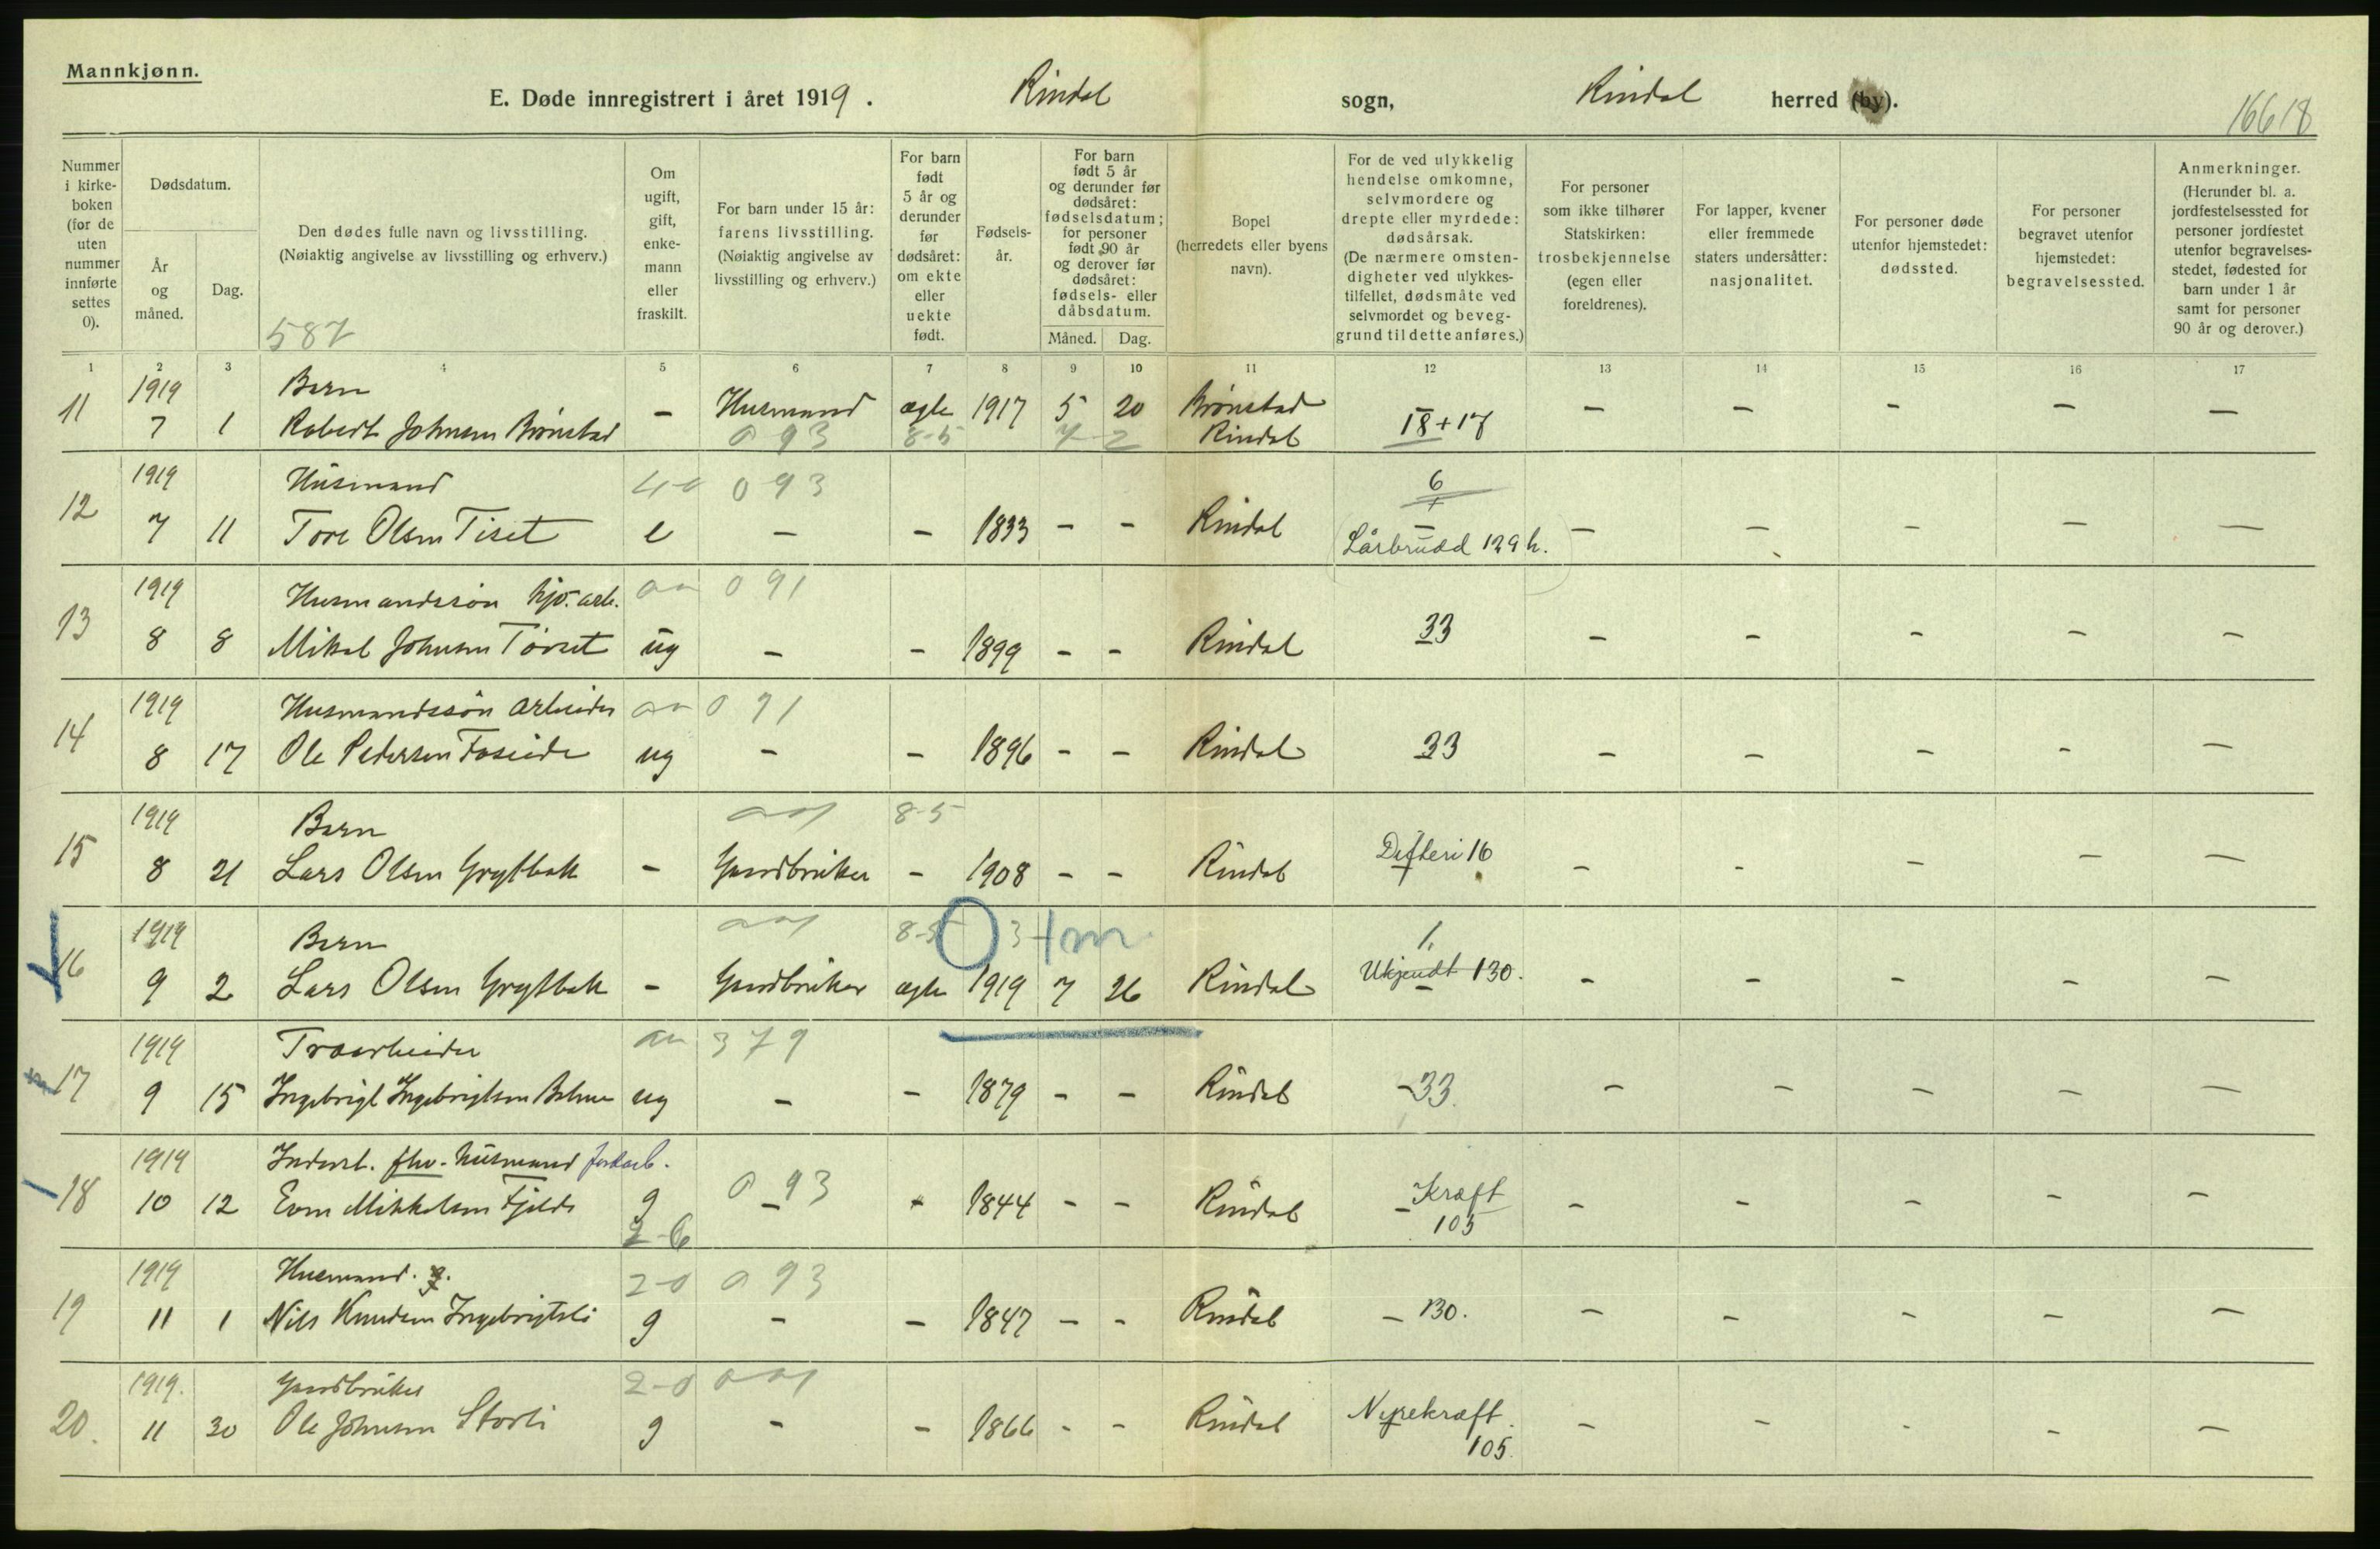 Mannkjønn.
E. Døde innregistrert i året 1919. Rindal sogn, Rindal herred (by).
16618
Nummer i kirke-boken (for de uten nummer innførte settes 0).
Dødsdatum.
År og måned.
Dag.
Den dødes fulle navn og livsstilling.
(Nøiaktig angivelse av livsstilling og erhverv.)
587
Om ugift, gift, enke-mann eller fraskilt.
For barn under 15 år: farens livsstilling. (Nøiaktig angivelse av livsstilling og erhverv.)
For barn født 5 år og derunder før dødsåret: om ekte eller uekte født.
Fødsels-år.
For barn født 5 år og derunder før dødsåret: fødselsdatum; for personer født 90 år og derover før dødsåret: fødsels- eller dåbsdatum.
Måned. Dag.
Bopel (herredets eller byens navn).
For de ved ulykkelig hendelse omkomne, selvmordere og drepte eller myrdede: dødsårsak. (De nærmere omsten-digheter ved ulykkes-tilfellet, dødsmåte ved selvmordet og beveg-grund til dette anføres.)
For personer som ikke tilhører Statskirken: trosbekjennelse (egen eller foreldrenes).
For lapper, kvener eller fremmede staters undersåtter: nasjonalitet.
For personer døde utenfor hjemstedet: dødssted.
For personer begravet utenfor hjemstedet: begravelsessted.
Anmerkninger. (Herunder bl. a. jordfestelsessted for personer jordfestet utenfor begravelses-stedet, fødested for barn under 1 år samt for personer 90 år og derover.)
1 2 3 4 5 6 7 8 9 10 11 12 13 14 15 16 17
1919 Barn
11 7 1 Robert Johnsen Brønstad - Husmand ægte 1917 5 20 Brønstad Rindal 18+17 - - - - -
093 8-5 7 2
1919 Husmand 4-0 093 6
12 7 11 Tore Olsen Tiset e - - 1833 - - Rindal - Lårbrudd 129 h. - - - - -
1919 Husmandssøn hjo. arb. 091
13 8 8 Mikal Johnsen Tørset ug - - 1899 - - Rindal 33 - - - - -
1919 Husmandssøn arbeider 091
14 8 17 Ole Pedersen Foseide ug - - 1896 - - Rindal 33 - - - - -
1919 Barn 8-5
15 8 21 Lars Olsen Grytbak - Gaardbruker - 1908 - - Rindal Difteri 16 - - - - -
1919 Barn 8-5 3 1 m 1.
16 9 2 Lars Olsen Grytbak - Gaardbruker ægte 1919 7 26 Rindal Ukjendt 130. - - - - -
1919 Træarbeider 379
17 9 15 Ingebrigt Ingebrigtsen Bolme ug - - 1879 - - Rindal - 33. - - - - -
1919 Inderst. fhv. husmand jordarb. 093
18 10 12 Even Mikkelsen Fjelde g - - 1844 - - Rindal - Kræft 105 - - - - -
2-6
1919 Husmand. 2-0 093
19 11 1 Nils Knudsen Ingebrigtsli g - - 1847 - - Rindal - 130. - - - - -
1919. Gaardbruker 2-0
20. 11 30 Ole Johnsen Storli g - - 1866 - - Rindal Nyrekræft. 105. - - - - -